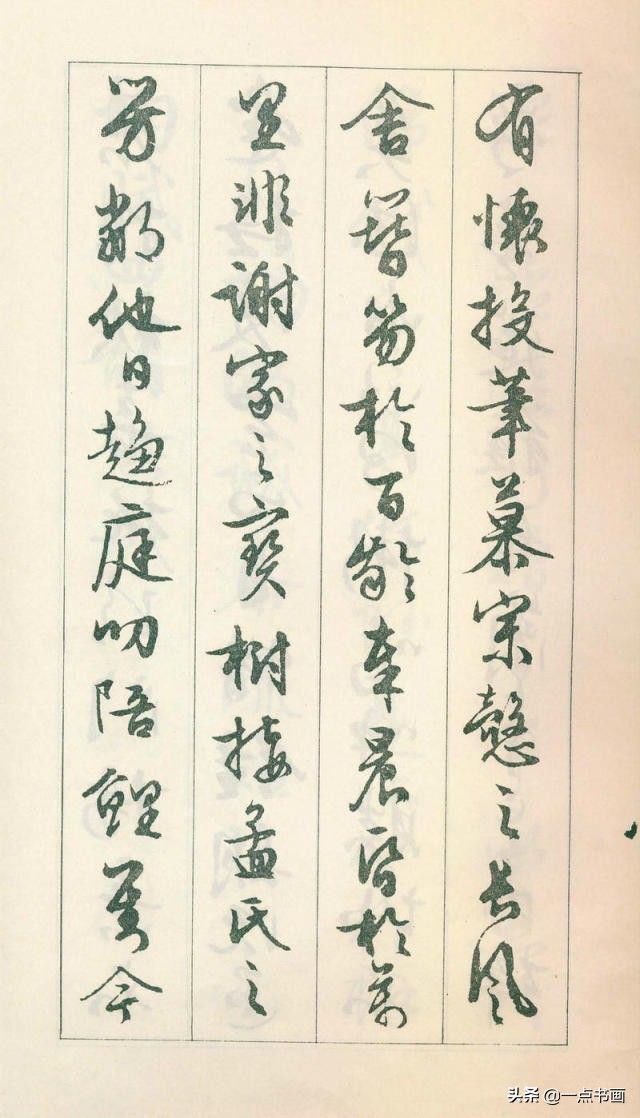 有懷投筆慕宗愨之長風
舍簪笏於百齡奉晨昏於萬
里非謝家之寶樹接孟氏之
芳鄰他日趨庭叨陪鯉對今
头条 @一点书画